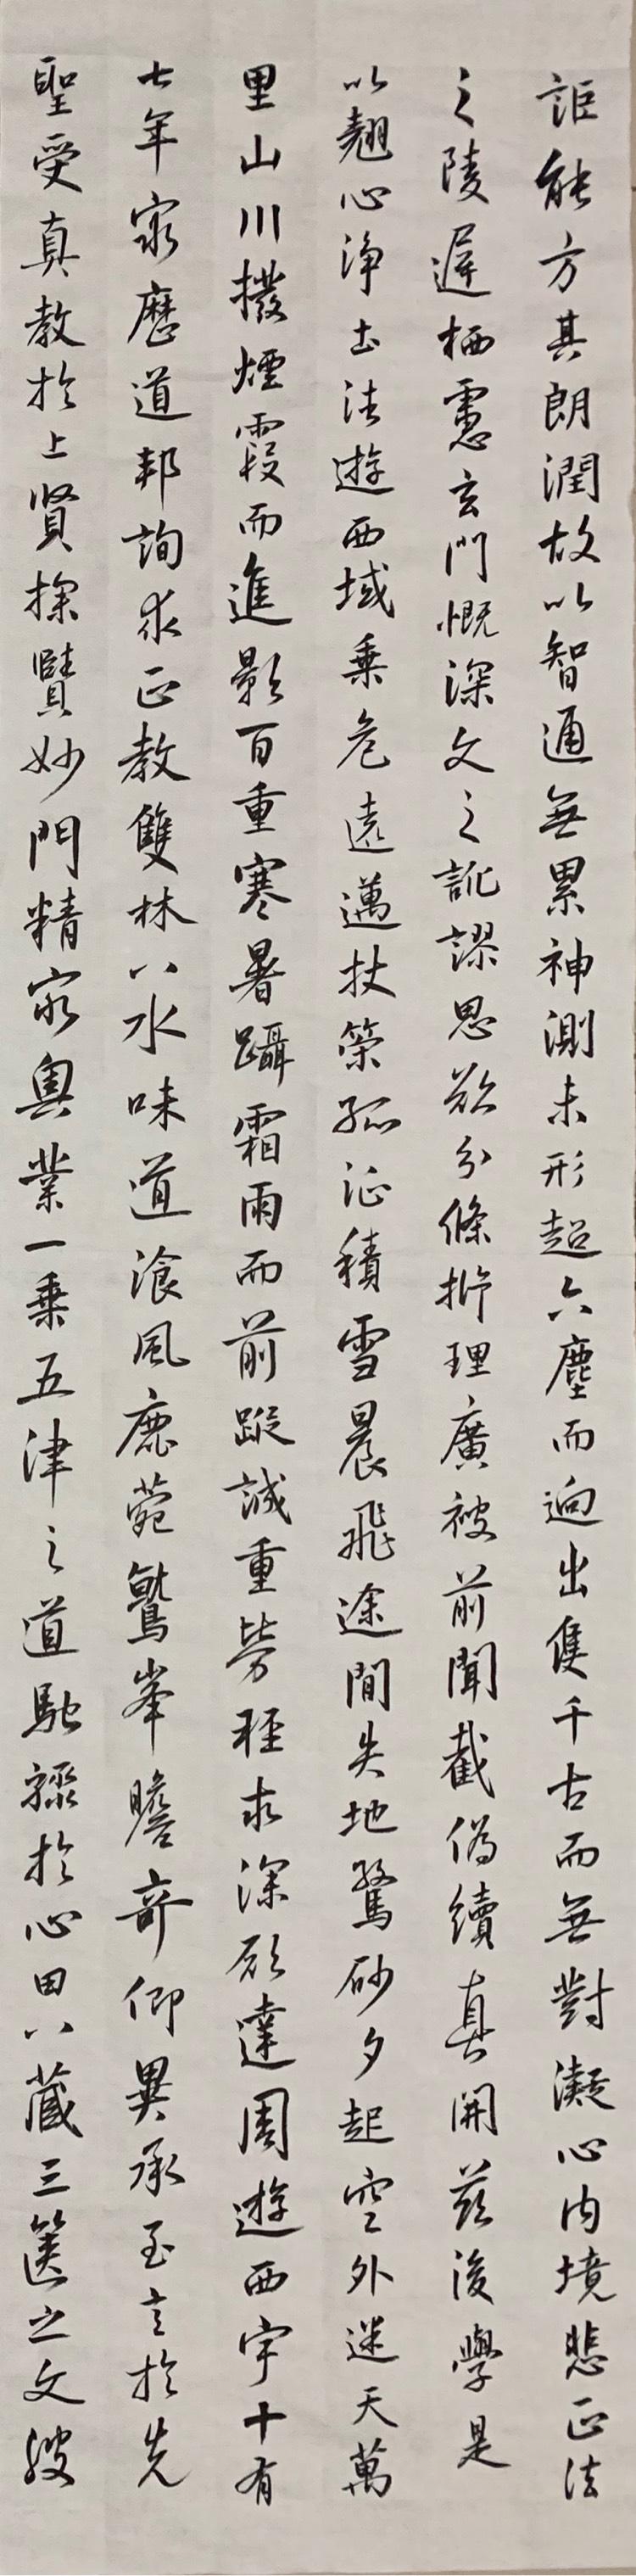 詎能方其朗潤故以智通無累神測未形超六塵而迥出隻千古而無對凝心內境悲正法
之陵遲栖慮玄門慨深文之訛謬思欲分條捬理廣被前聞截偽續真開茲後學是
以翹心淨土法遊西域乘危遠邁杖策孤征積雪晨飛途間失地驚砂夕起空外迷天萬
里山川撥煙霞而進影百重寒暑躡霜雨而前蹤誠重勞輕求深願達周遊西宇十有
七年窮歷道邦詢求正教雙林八水味道飡風鹿菀鷲峯瞻奇仰異承至言於先
聖受真教於上賢探賾妙門精窮奧業一乘五津之道馳驟於心田八藏三篋之文波